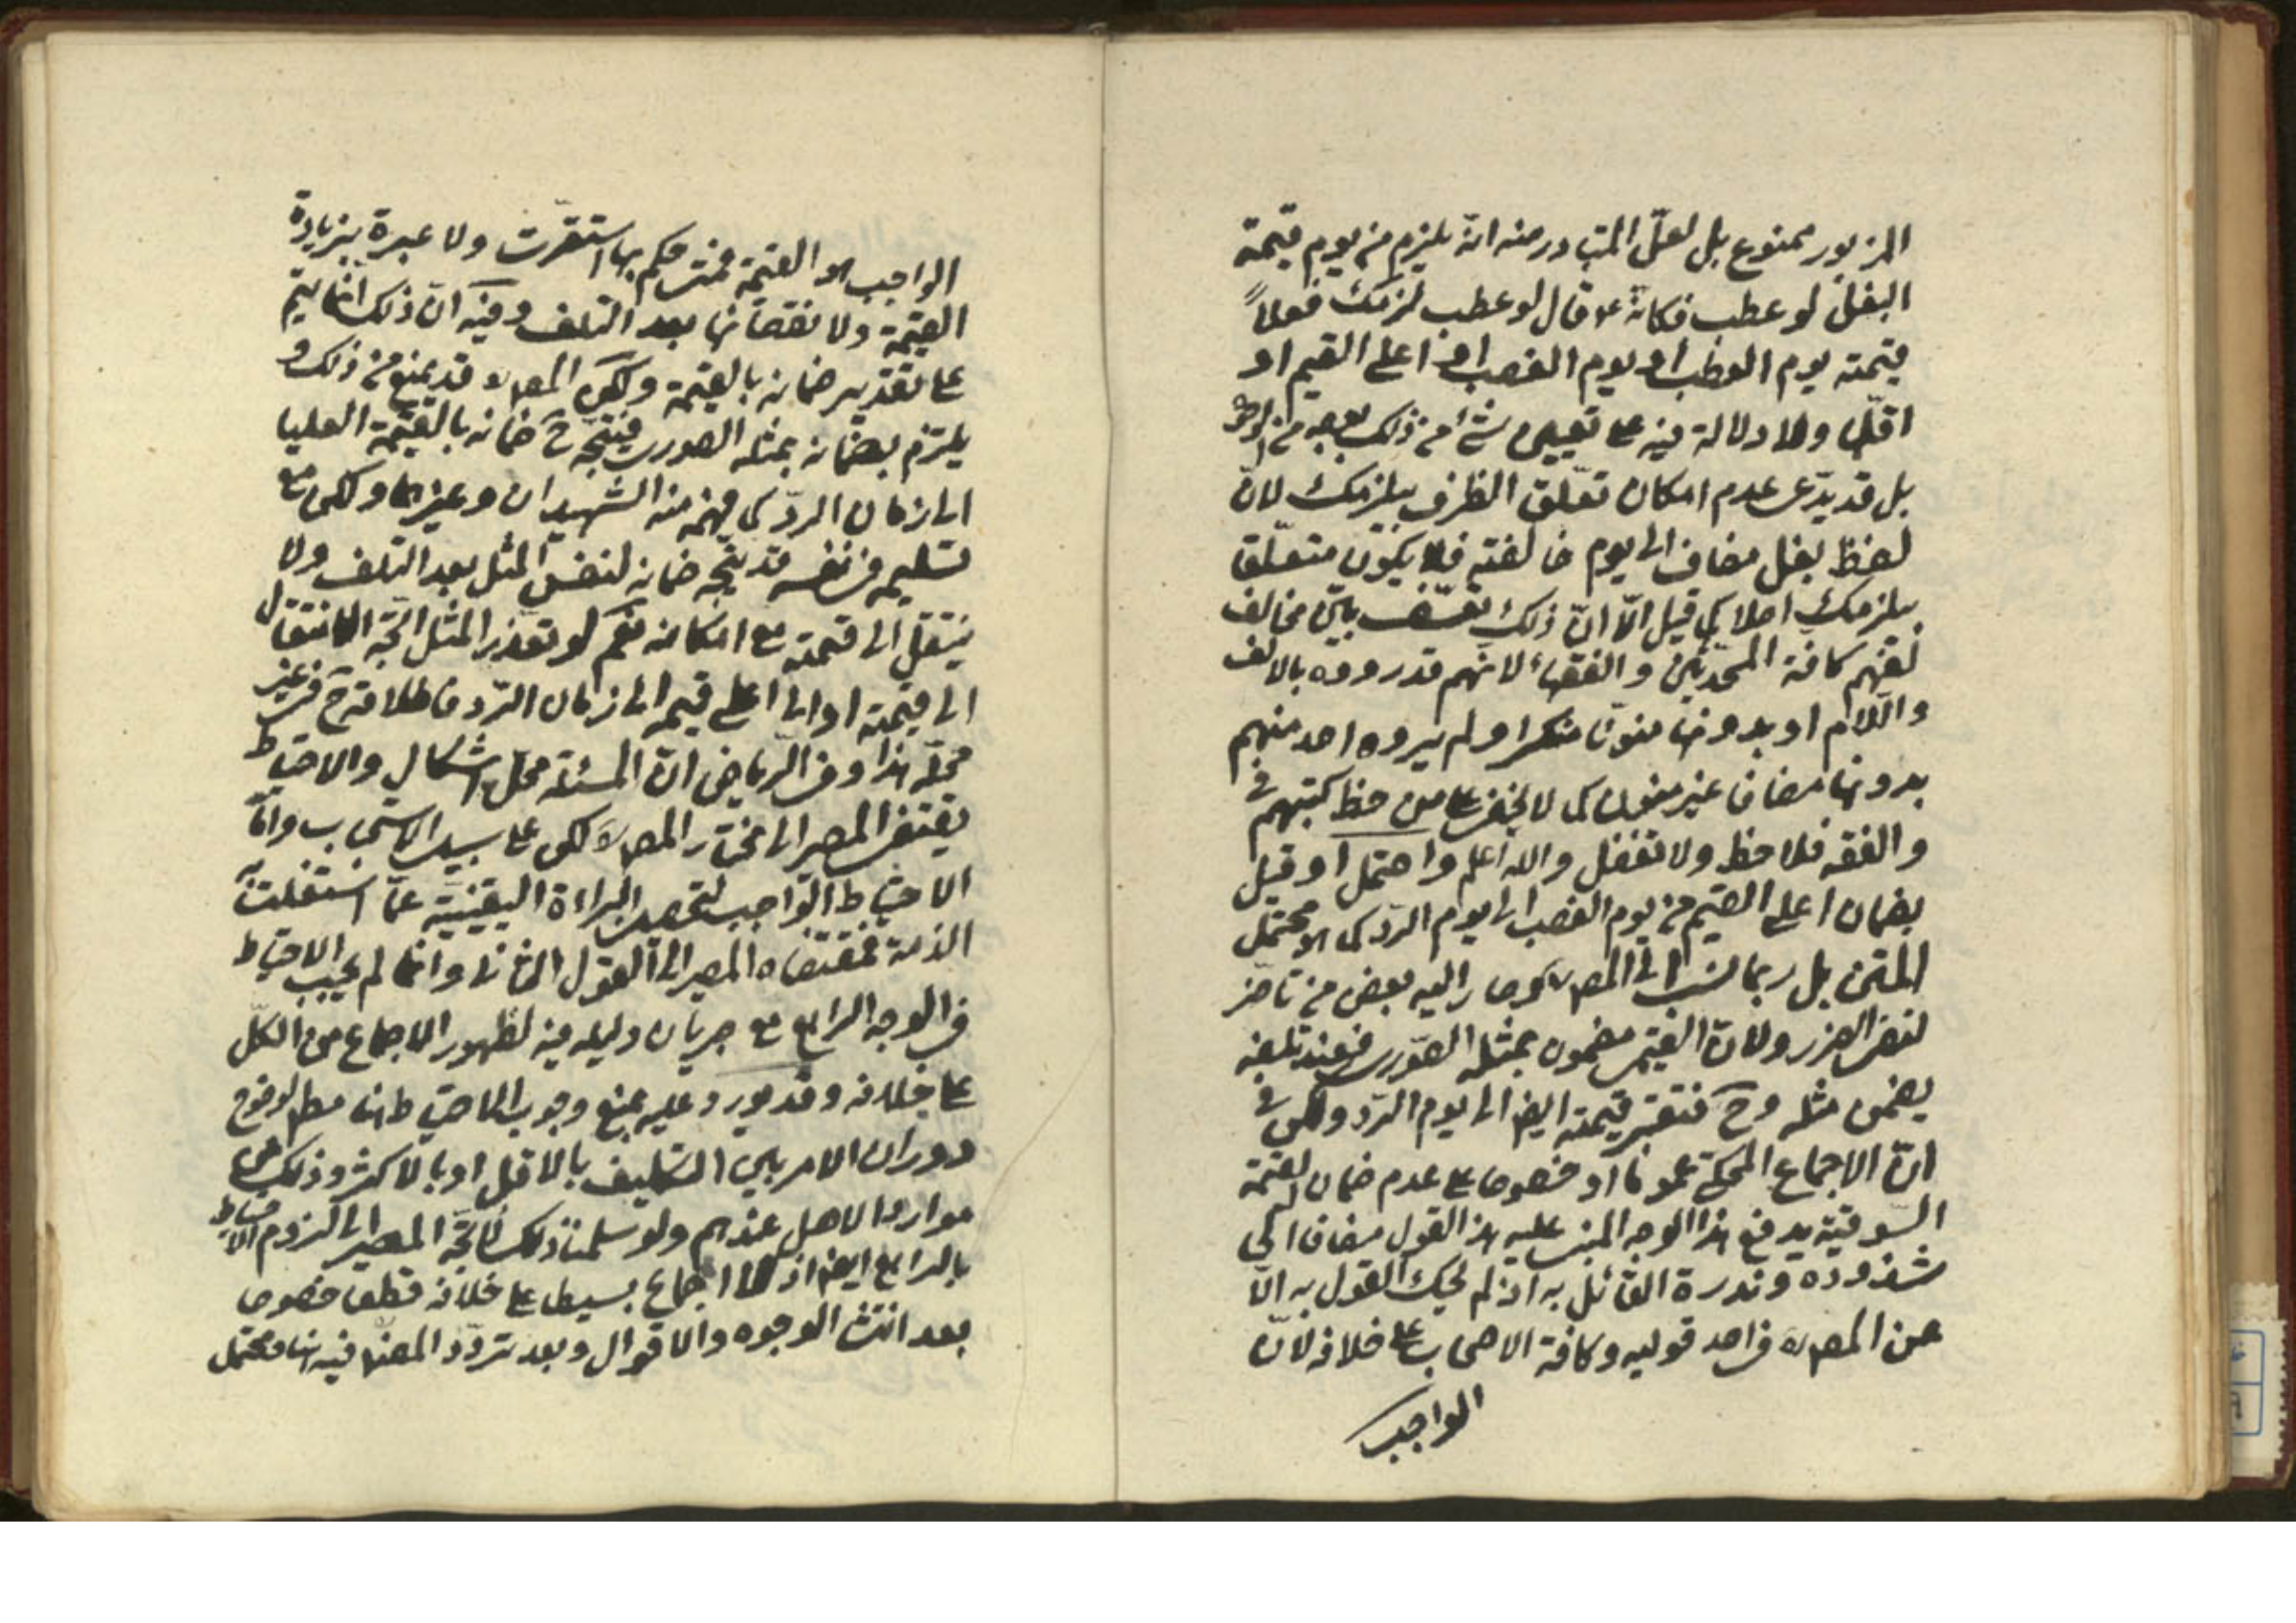 المزبور ممنوع بل لعلّ المتبادر منه انّه يلزم من يوم قيمة
البغل لو عطب فكانّه ع قال لو عطب لزمك فعلاً
قيمته يوم العطب او يوم الغصب او اعلى القيم او
اقلّها ولا دلالة فيه على تعيين شئ من ذلك بوجه من الوجوه
بل قد يدّعى عدم امكان تعلّق الظرف بيلزمك لانّ
لفظ بغل مضاف الى يوم خالفته فلا يكون متعلّقا
بيلزمك اصلا كما قيل الّا انّ ذلك تعسّف بيّن مخالف
لفهم كافة المحدّثين والفقهاء لانّهم قد رووه بالالف
واللام او بدونها منوّنا منكرا ولم يروه احد منهم
بدونها مضافا غير منون كما لا يخفى على من لاحظ كتبهم في
والفقه فلاحظ ولا تغفل والله اعلم واحتمل او قيل
بضمان اعلى القيم من يوم الغصب الى يوم الردّ كما هو محتمل
المتن بل ربما نسب الى المصره وصار اليه بعض من تاخر
لنفى الضرر ولانّ القيمى مضمون بمثله الصّورى فعند تلفه
يضمن مثله وح فتعتبر قيمته ايض الى يوم الردّ ولكن في
انّ الاجماع المحكىّ عموما او خصوصا على عدم ضمان القيمة
السّوقيّة يدفع هذا الوجه المبنى عليه هذا القول مضافا الى
شذوذه وندرة القائل به اذ لم يحك القول به الّا
عن المصره في احد قوليه وكافة الاصحاب على خلافه لانّ
الواجب
الواجب هو القيمة فمتى حكم بها استقرّت ولا عبرة بزيادة
القيمة ولا نقصانها بعد التلف وفيه انّ ذلك انّما يتم
على تقدير ضمانه بالقيمة ولكن المصره قد يمنع من ذلك و
يلتزم بضمانه بمثله الصورى فيتجّه ح ضمانه بالقيمة العليا
الى زمان الردّ كما فهمه منه الشهيدان وغيرهما ولكن مع
تسليمه في نفسه قد يتجه ضمانه لنفس المثل بعد التلف ولا
ينتقل الى قيمته مع امكانه نعم لو تعذر المثل اتّجه الانتقال
الى قيمته او الى اعلى قيمه الى زمان الردّ فاطلاقه ح في غير
محلّه هذا وفى الرّياض انّ المسئلة محلّ اشكال والاحتياط
يقتضى المصير الى مختار المصره لكن على سبيل الاستحباب وامّا
الاحتياط الواجب لتحصيل البراءة اليقينيّة عمّا اشتغلت
الذمة فمقتضاه المصير الى القول الثانى وانّما لم يجب الاحتياط
في الوجه الرابع مع جريان دليله فيه لظهور الاجماع من الكلّ
على خلافه وقد يورد عليه بمنع وجوب الاحتياط هنا مطلقا لوضوح
دوران الامر بين التكليف بالاقل او بالاكثر وذلك من
موارد الاصل عندهم ولو سلمنا ذلك لاتّجه المصير الى لزوم الاحتياط
بالرابع ايض اذ لا اجماع بسيطا على خلافه قطعا خصوصا
بعد انتشار الوجوه والاقوال وبعد تردّد المصنف فيه هنا ومحتمل